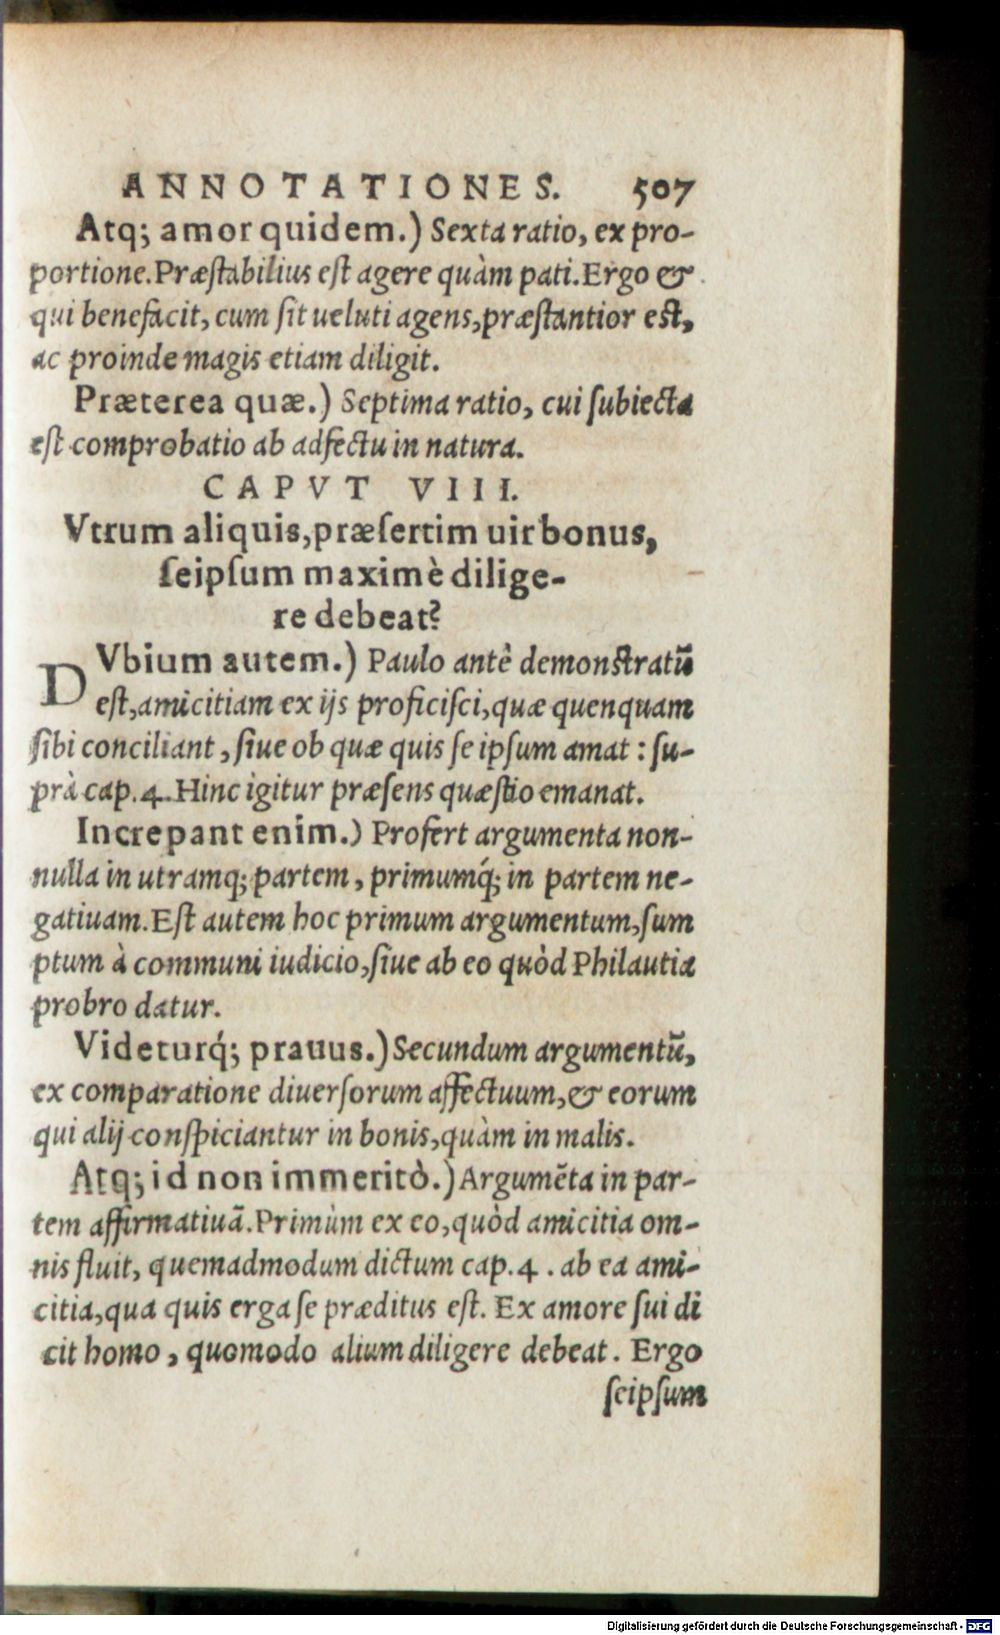 ANNOTATIONES. 507
Atq; amor quidem.) Sexta ratio, ex pro-
portione. Præſtabilius eſt agere quàm pati. Ergo &
qui benefacit, cum ſit ueluti agens, præſtantior eſt,
ac proinde magis etiam diligit.
Præterea quæ.) Septima ratio, cui ſubiecta
eſt comprobatio ab adfectu in natura.
CAPVT VIII.
Vtrum aliquis, præſertim uir bonus,
ſeipſum maximè dilige-
re debeat?
DVbium autem.) Paulo antè demonſtratū
eſt, amicitiam ex ijs proficiſci, quæ quenquam
ſibi conciliant, ſiue ob quæ quis ſe ipſum amat: ſu-
prà cap. 4. Hinc igitur præſens quæſtio emanat.
Increpant enim.) Profert argumenta non-
nulla in utramq; partem, primumq́; in partem ne-
gatiuam. Eſt autem hoc primum argumentum, ſum
ptum à communi iudicio, ſiue ab eo quòd Philautia
probro datur.
Videturq́; prauus.) Secundum argumentū,
ex comparatione diuerſorum affectuum, & eorum
qui alij conſpiciantur in bonis, quàm in malis.
Atq; id non immeritò.) Argumēta in par-
tem affirmatiuā. Primùm ex eo, quòd amicitia om-
nis fluit, quemadmodum dictum cap. 4. ab ea ami-
citia, qua quis erga ſe præditus eſt. Ex amore ſui di
cit homo, quomodo alium diligere debeat. Ergo
ſeipſum
Digitalisierung gefördert durch die Deutsche Forschungsgemeinschaft - DFG